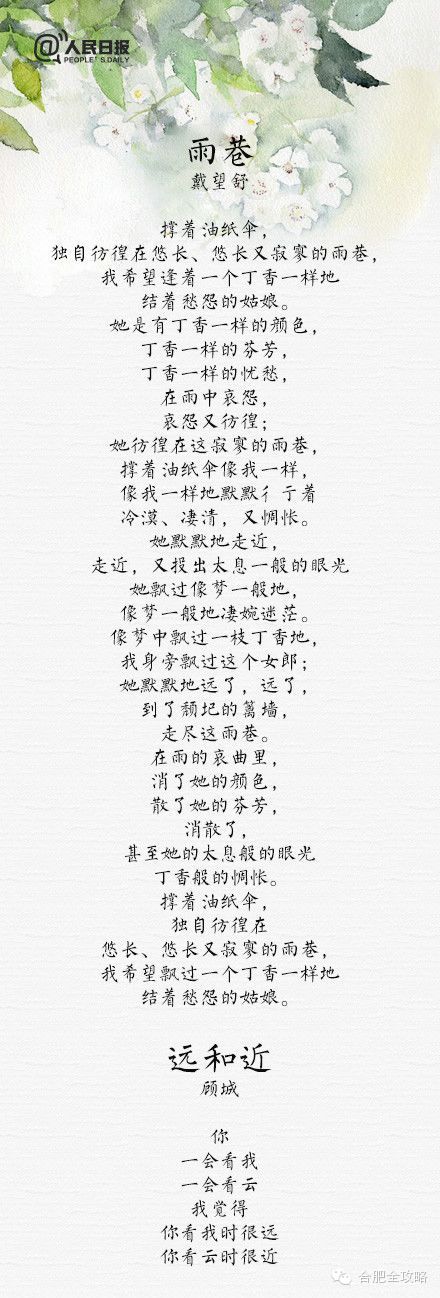 @人民日报
PEOPLE'S DAILY
雨巷
戴望舒
撑着油纸伞，
独自彷徨在悠长、悠长又寂寥的雨巷，
我希望逢着一个丁香一样地
结着愁怨的姑娘。
她是有丁香一样的颜色，
丁香一样的芬芳，
丁香一样的忧愁，
在雨中哀怨，
哀怨又彷徨；
她彷徨在这寂寥的雨巷，
撑着油纸伞像我一样，
像我一样地默默彳亍着
冷漠、凄清，又惆怅。
她默默地走近，
走近，又投出太息一般的眼光
她飘过像梦一般地，
像梦一般地凄婉迷茫。
像梦中飘过一枝丁香地，
我身旁飘过这个女郎；
她默默地远了，远了，
到了颓圮的篱墙，
走尽这雨巷。
在雨的哀曲里，
消了她的颜色，
散了她的芬芳，
消散了，
甚至她的太息般的眼光
丁香般的惆怅。
撑着油纸伞，
独自彷徨在
悠长、悠长又寂寥的雨巷，
我希望飘过一个丁香一样地
结着愁怨的姑娘。
远和近
顾城
你
一会看我
一会看云
我觉得
你看我时很远
你看云时很近
合肥全攻略